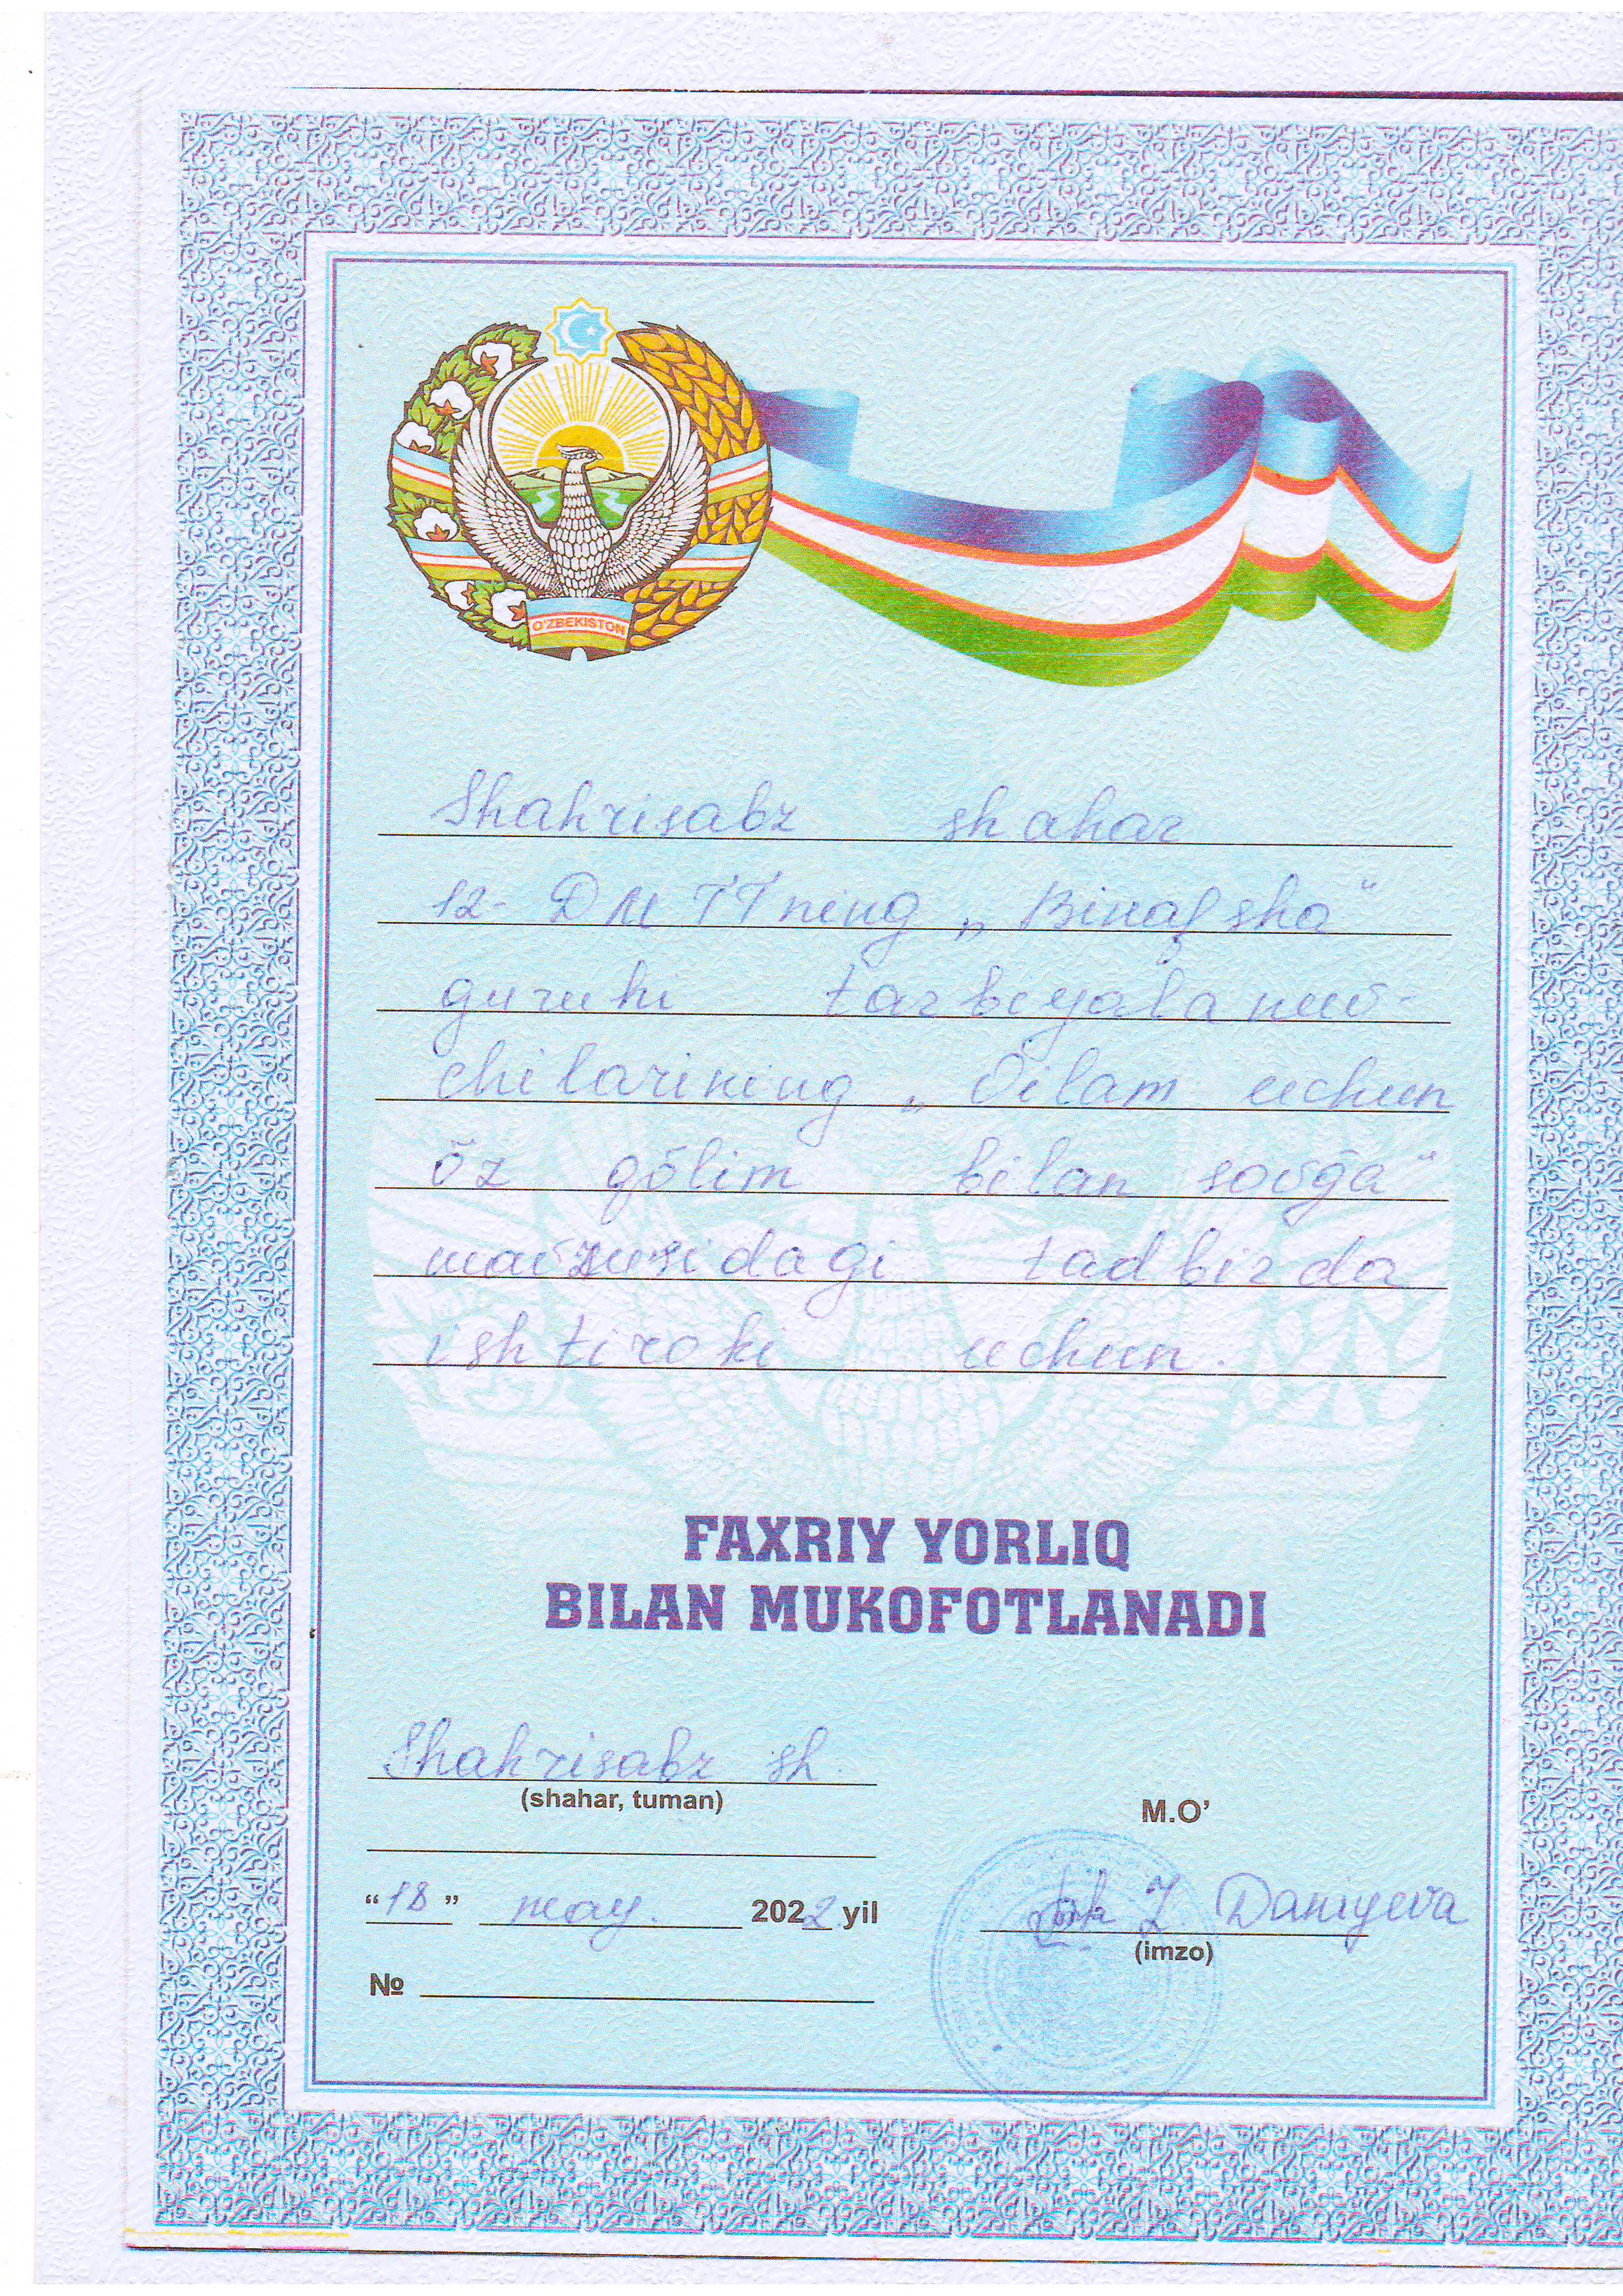 O'ZBEKISTON
Shahrisabz shahar
12- DMTTning „Binafsha“
guruhi tarbiyalanuv-
chilarining „Oilam uchun
õz qõlim bilan sovg̃a“
mavzusidagi tadbirda
ishtiroki uchun.
FAXRIY YORLIQ
BILAN MUKOFOTLANADI
Shahrisabz sh
(shahar, tuman)
M.O’
“18” may. 2022 yil
Z. Daniyeva
(imzo)
№